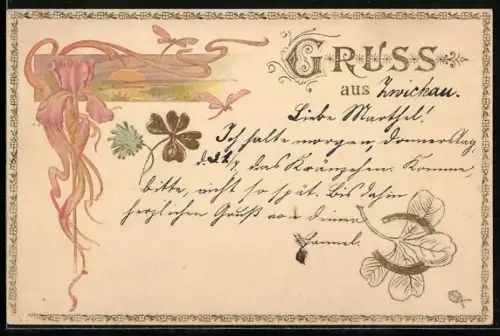 GRUSS
aus Zwickau.
Liebe Marthel!
Ich halte morgen, donnerstag,
d. 22/7, das Kränzchen. Komme
bitte, nicht so spät. Bis dahin
herzlichen Gruß von deiner